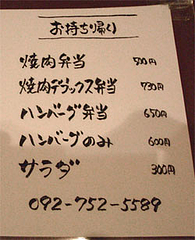 お持ち帰り
焼肉弁当 500円
焼肉デラックス弁当 730円
ハンバーグ弁当 650円
ハンバーグのみ 600円
サラダ 300円
092-752-5589